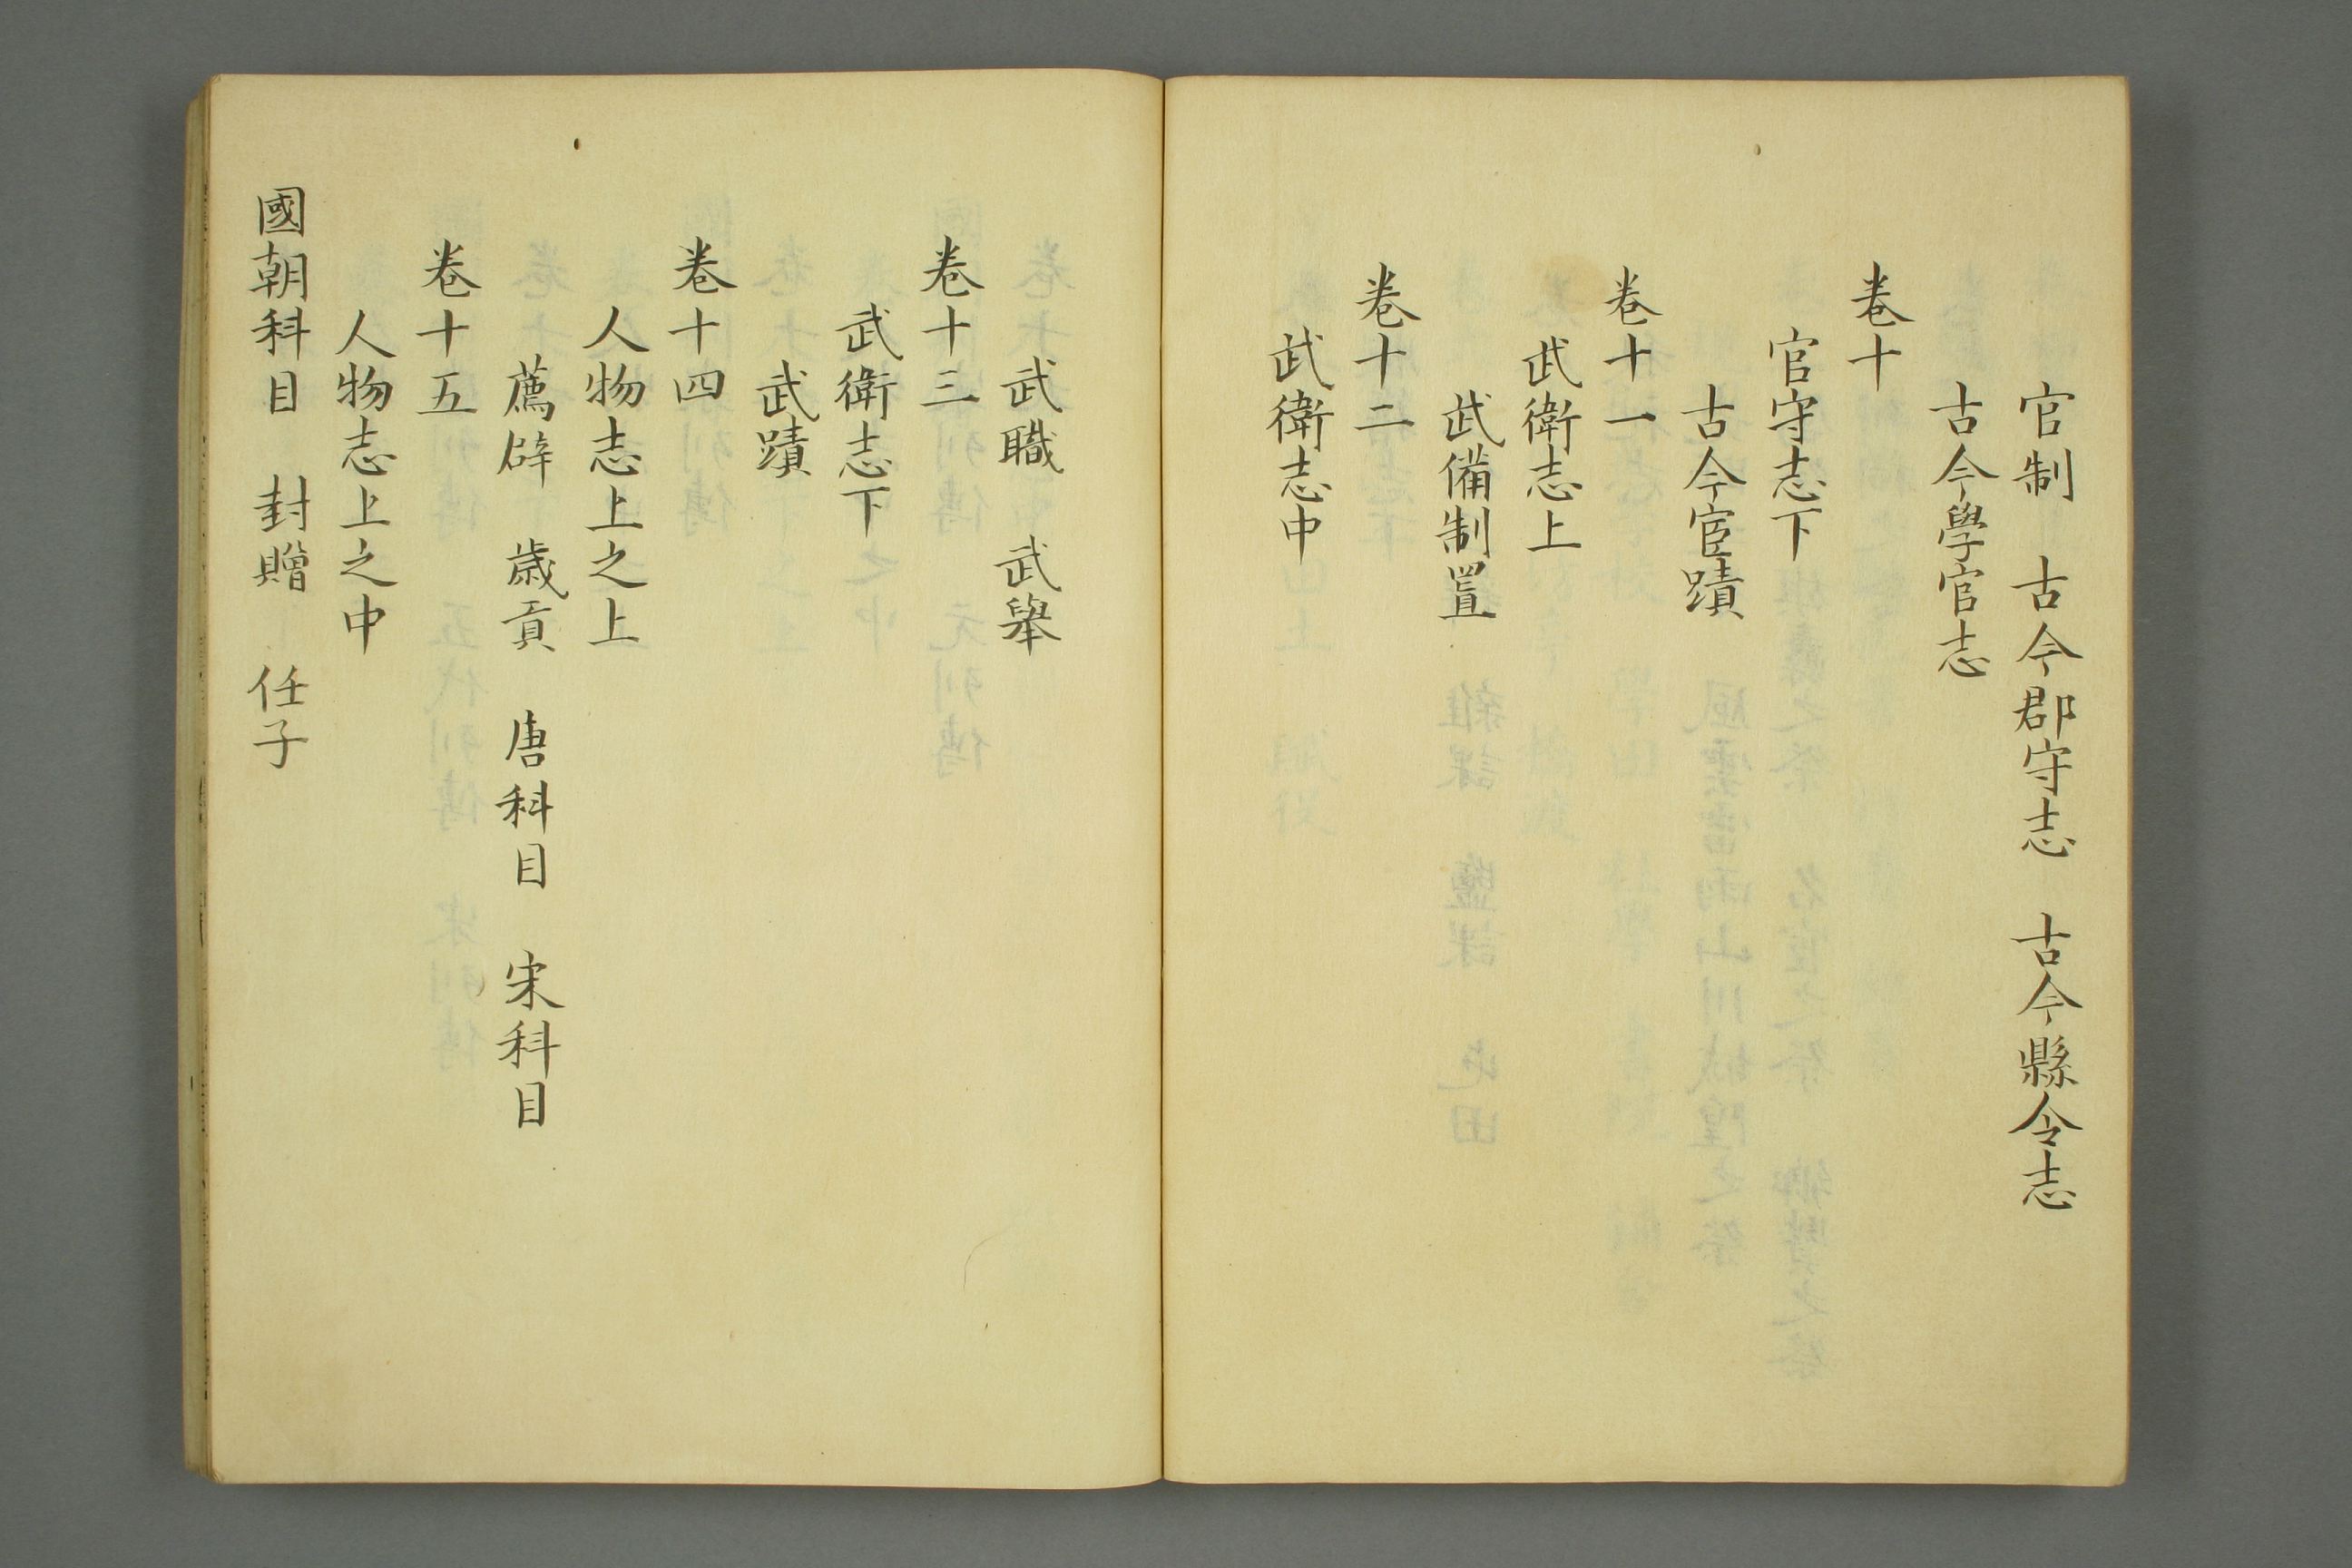 官制　古今郡守志　古今縣令志
古今學官志
卷十
官守志下
古今宦蹟
卷十一
武衛志上
武備制置
卷十二
武衛志中
武職　武舉
卷十三
武衛志下
武蹟
卷十四
人物志上之上
薦辟　歲貢　唐科目　宋科目
卷十五
人物志上之中
國朝科目　封贈　任子